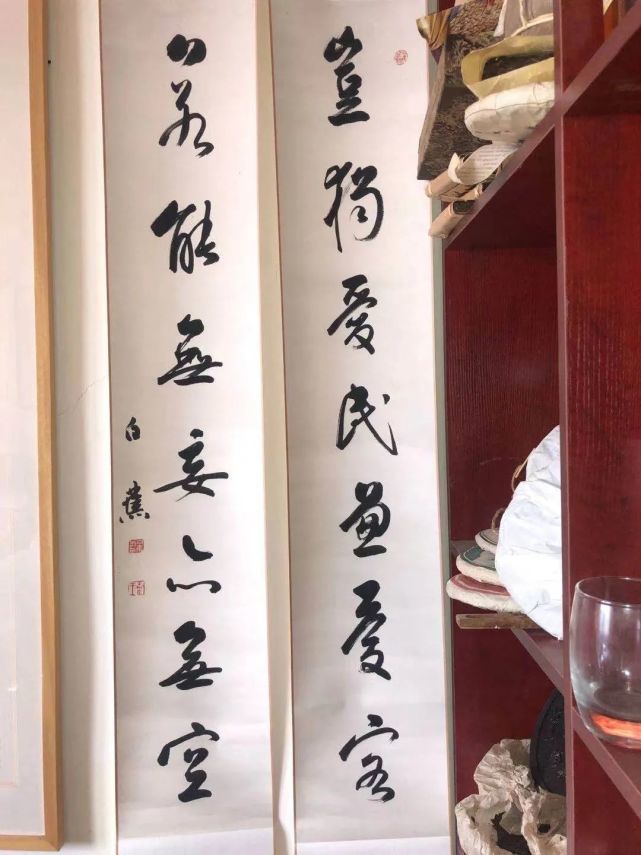 豈獨愛民兼愛客
若能無妄亦無空
白蕉